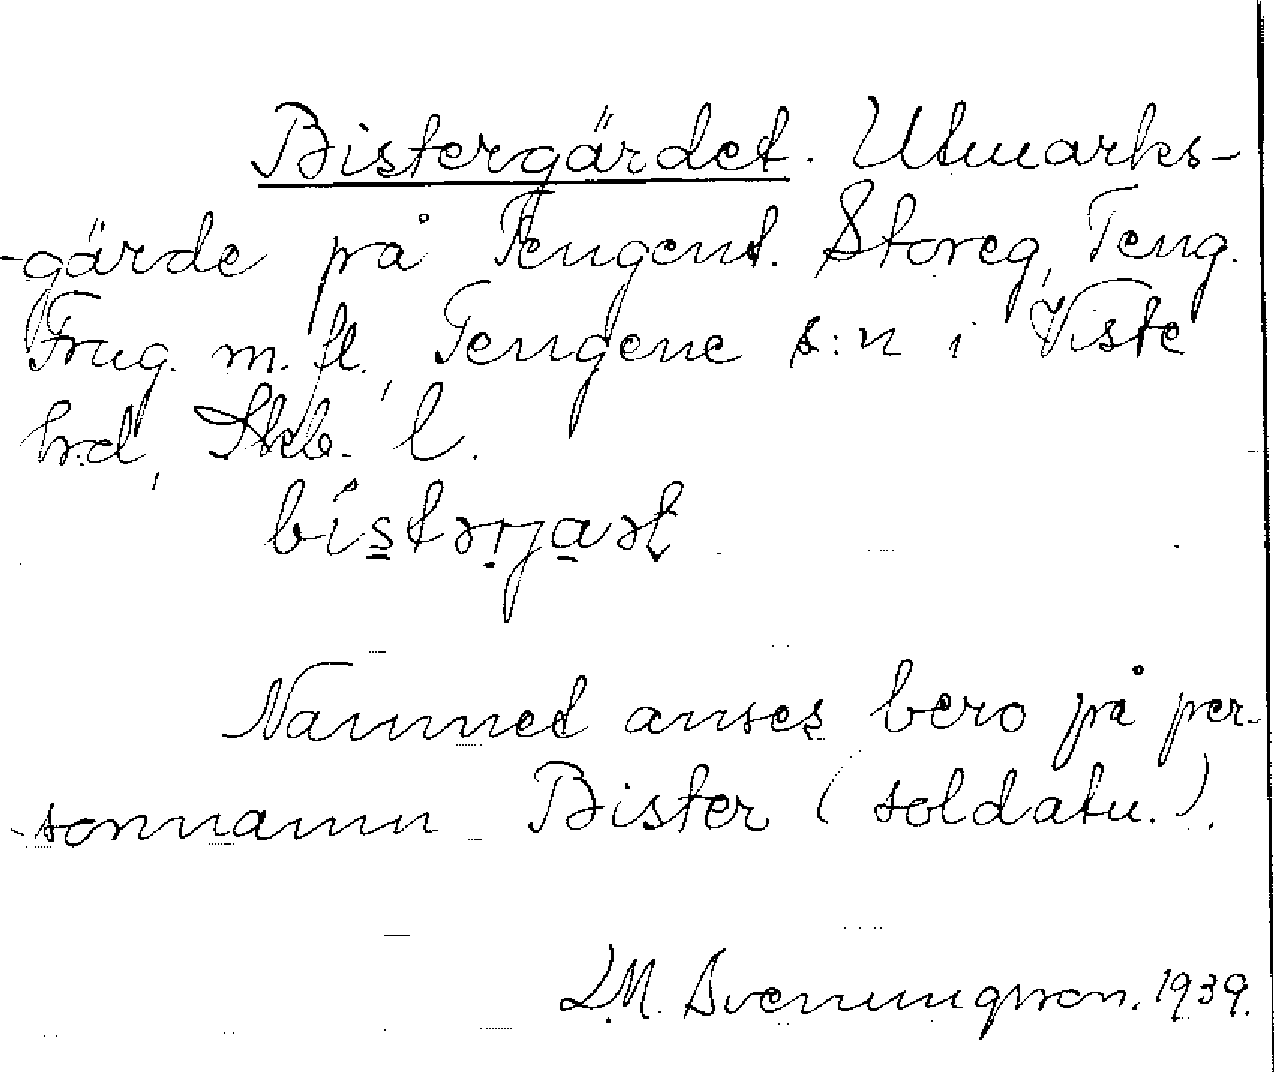 Bistergärdet. Utmarks-
-gärde på Tengent. Storeg, Teng.
Frug. m. fl., Tengene s:n i Viste
hrd, Skb. l.
bístərjaət
Namnet anses bero på per-
-sonnamn Bister (soldatn.).
L.M. Svenungsson. 1939.